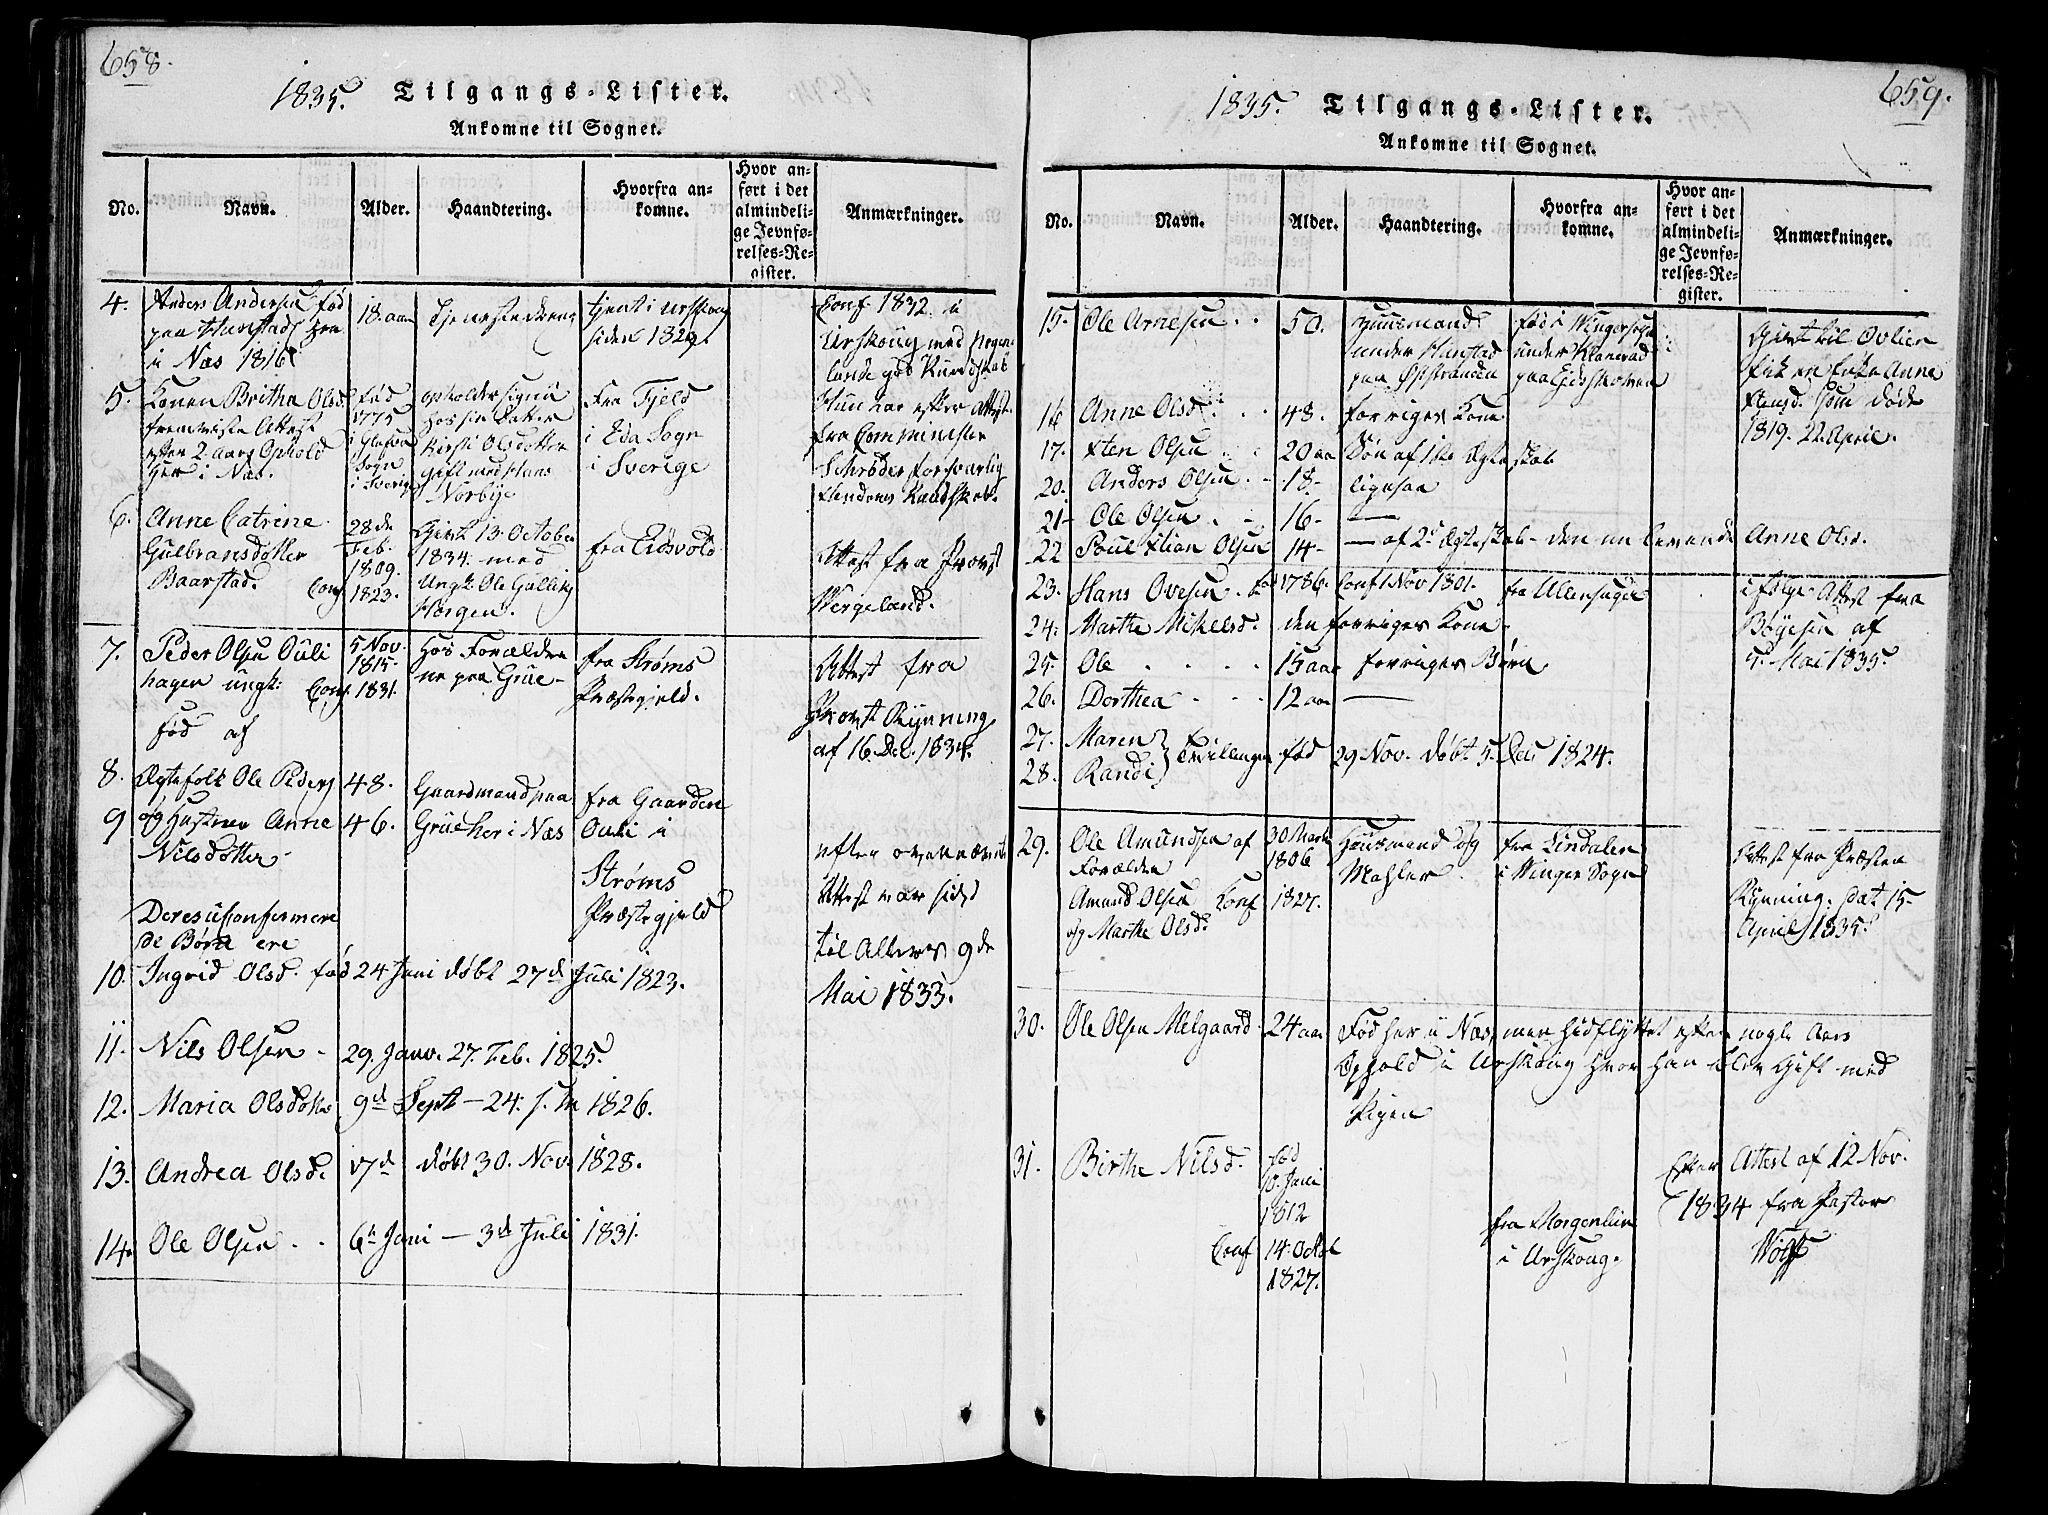 658.
1835. Tilgangs-Lister.
Ankomne til Sognet.
No.
Navn.
Alder.
Haandtering.
Hvorfra an-
komne.
Hvor an-
ført i det
almindeli-
ge Jevnfø-
relses-Re-
gister.
Anmærkninger.
4.
Anders Andersen fød
paa Hunstad
i Næs 1816
18. aar
Tjenestedreng
tjent i Urskoug
siden 1829.
Conf 1832. i
Urskoug med
god Kundskab
5.
Konen Britha Olsd.
fremviste Attest
efter 2 aars Ophold
her i Næs.
fød
1775
i
Sogn
i Sverige
opholder sig nu
hos sin Datter
Kirsti Olsdotter
gift med Hans
Norbye
Fra Fjeld
i Eda Sogn
i Sverige
Hun har efter Attest
fra Comminister
Schrøder forsvarlig
Kundskab.
6.
Anne Catrine
Gulbransdotter
Baarstad. Conf
28de
Feb.
1809.
1823.
Givt 13 October
1834. med
Ungk: Ole Galling
Horgen.
fra Eidsvold
Attest fra Provst
Wergeland.
7.
Peder Olsen Ouli
hagen ungk: Conf
fød af
5 Nov.
1815.
1831.
Hos Forældre
ne paa Grue
fra Strøms
Præstegjeld.
Attest fra
Provst Rynning
af 16 Dec. 1834.
8. Ægtefolk Ole Peders
48.
Gaardmand paa
fra Gaarden
9 og Hustrue Anne
Nilsdotter
46.
Grue her i Næs
Ouli i
Strøms
Præstegjeld
efter ovennævnte
Attest var sidst
til Alters 9de
Mai 1833.
Deres uConfirmere
de Børn ere
10. Ingrid Olsd. fød 24 Juni døbt 27d Juli 1823.
11. Nils Olsen - 29. Janv. 27. Feb. 1825.
12. Maria Olsdotter 9d Sept - 24. s. M 1826.
13. Andrea Olsd. 17d døbt 30. Nov. 1828.
14. Ole Olsen . . 6te Juni - 3d Juli 1831.
659.
1835. Tilgangs-Lister.
Ankomne til Sognet.
No.
Navn.
Alder.
Haandtering.
Hvorfra an-
komne.
Hvor an-
ført i det
almindeli-
ge Jevnfø-
relses-Re-
gister.
Anmærkninger.
15. Ole Arnesen . .
50.
Huusmand
under Hunstad
paa Øststranden
fød i Winger sogn
under
paa Eidsskoven
Givt til
Anne
som døde
1819. 22 April.
16 Anne Olsd. . . 48. forriges Kone
17. Sten Olsen . . 20 aar Søn af 1ste Ægteskab
20. Anders Olsen. - 18. - ligesaa
21 Ole Olsen . - 16 -
22 Poul Olsen 14 - af 2d Ægteskab - den nu levende Anne Olsd.
23. Hans Ovesen. fød 1786. Conf 1 Nov 1801. fra Ullensager
i følge Attest fra
Bøyesen af
5. Mai 1835.
24. Marthe Mikelsd. den forriges Kone
25. Ole . . . . 15 aar forriges Børn
26. Dorthea . . . 12 aar
27. Maren
28. Randi
Tvillinger fød 29 Nov. døbt 5. Dec 1824.
29. Ole Amundsen af
Forældre
Amund Olsen Conf
og Marthe Olsd.
30 Marts
1806
1827.
Huusmand og
Mahler.
fra Lindalen
i Winger Sogn
Attest fra Præsten
Rynning. Dat 15
April 1835.
30. Ole Olsen Melgaard 24 aar Fød her i Næs, men hidflyttet efter nogle Aars
Ophold i Urskoug hvor han blev Gift med
Pigen
31. Birthe Nilsd.
Conf
fød
10. Juli
1812
14. Octob
1827.
fra Morgenlien
i Urskoug.
Efter Attest af 12 Nov.
1834 fra Pastor
Wolff